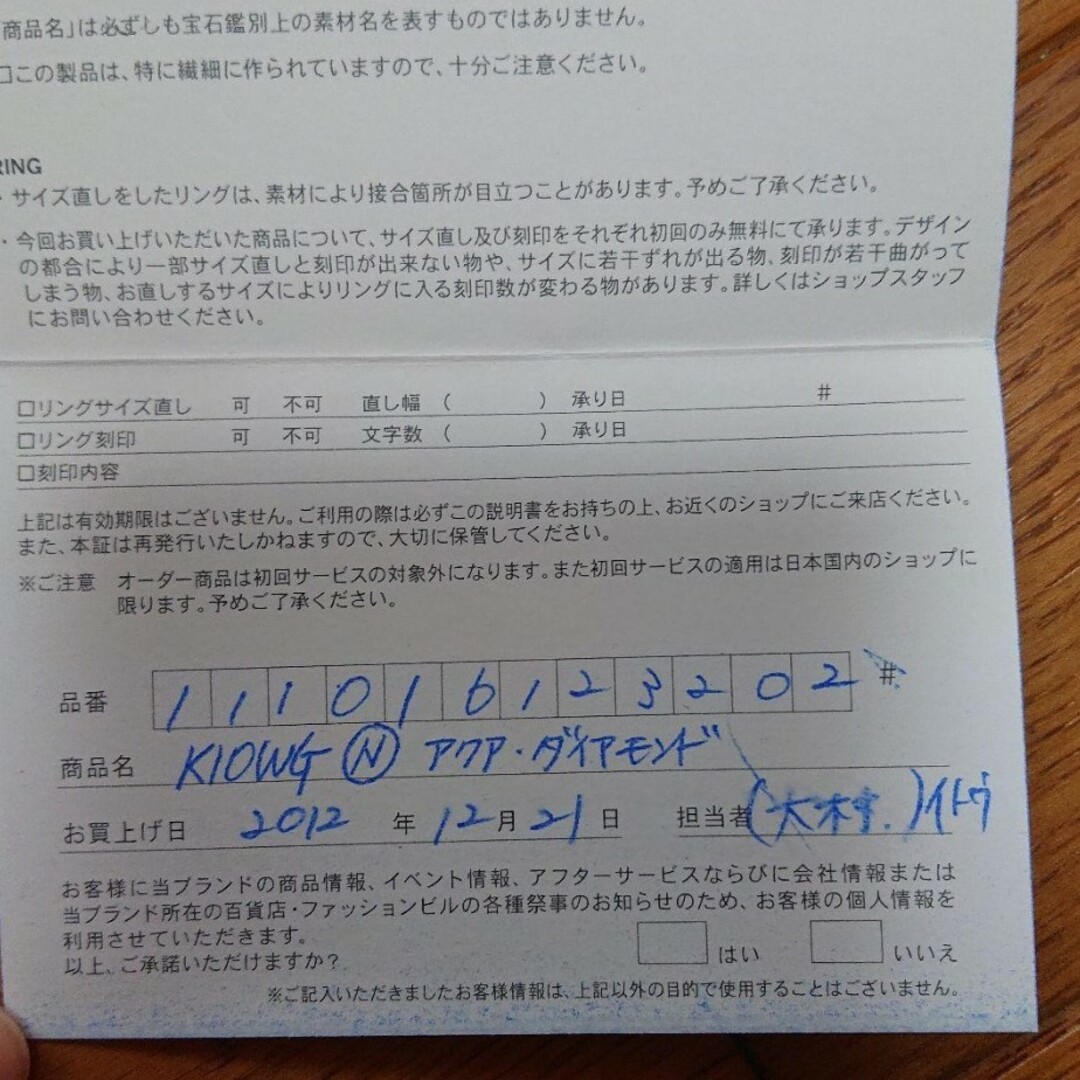 商品名」は必ずしも宝石鑑別上の素材名を表すものではありません。
□この製品は、特に繊細に作られていますので、十分ご注意ください。
RING
・サイズ直しをしたリングは、素材により接合箇所が目立つことがあります。予めご了承ください。
・今回お買い上げいただいた商品について、サイズ直し及び刻印をそれぞれ初回のみ無料にて承ります。デザイン
の都合により一部サイズ直しと刻印が出来ない物や、サイズに若干ずれが出る物、刻印が若干曲がって
しまう物、お直しするサイズによりリングに入る刻印数が変わる物があります。詳しくはショップスタッフ
にお問い合わせください。
□リングサイズ直し 可 不可 直し幅 ( ) 承り日 #
□リング刻印 可 不可 文字数 ( ) 承り日
□刻印内容
上記は有効期限はございません。ご利用の際は必ずこの説明書をお持ちの上、お近くのショップにご来店ください。
また、本証は再発行いたしかねますので、大切に保管してください。
※ご注意 オーダー商品は初回サービスの対象外になります。また初回サービスの適用は日本国内のショップに
限ります。予めご了承ください。
品番 111016123202 #
商品名 K10WG Ⓝ アクア・ダイアモンド
お買上げ日 2012 年 12 月 21 日 担当者 (大村.)イトウ
お客様に当ブランドの商品情報、イベント情報、アフターサービスならびに会社情報または
当ブランド所在の百貨店・ファッションビルの各種祭事のお知らせのため、お客様の個人情報を
利用させていただきます。
以上、ご承諾いただけますか? □はい □いいえ
※ご記入いただきましたお客様情報は、上記以外の目的で使用することはございません。